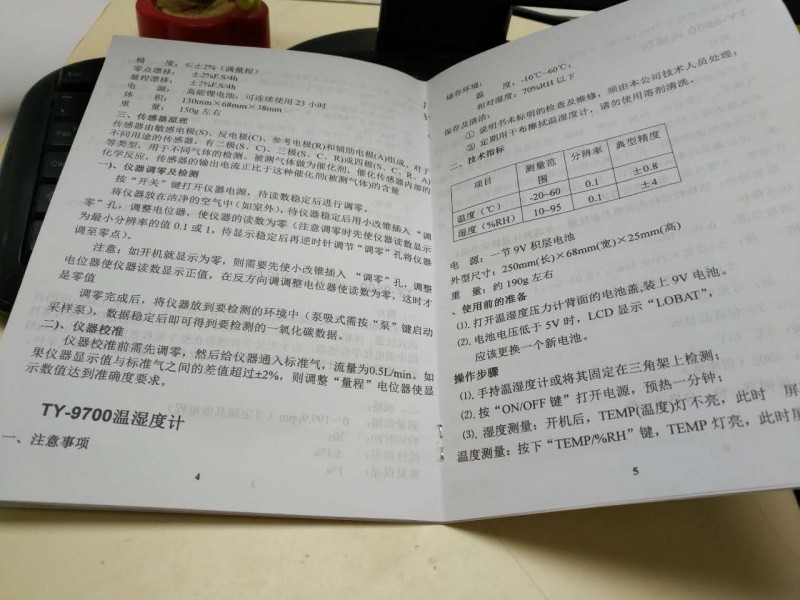 精 度：≤±2%（满量程）
零点漂移： ±2%F.S/4h
量程漂移： ±2%F.S/4h
电 源： 高能锂电池，可连续使用 23 小时
体 积： 130mm×68mm×38mm
重 量： 150g 左右
三、传感器原理
传感器由敏感电极(S)、反电极(C)、参考电极(R)和辅助电极(A)组成，对于
不同用途的传感器，有二极(S、C)、三极(S、C、R)或四极(S、C、R、A)
等类型，用于不同气体的检测。被测气体做为催化剂，催化传感器内部的
化学反应，传感器的输出电流正比于这种催化剂(被测气体)的含量
一)、仪器调零及检测
按“开关”键打开仪器电源，待读数稳定后进行调零。
将仪器放在洁净的空气中（如室外），待仪器稳定后用小改锥插入“调
零”孔，调整电位器，使仪器的读数为零（注意调零时先使仪器读数显示
为最小分辨率的值 0.1 或 1，待显示稳定后再逆时针调节“调零”孔将仪器
调至零点）。
注意：如开机就显示为零，则需要先使小改锥插入 “调零”孔，调整
电位器使仪器读数显示正值，在反方向调调整电位器使读数为零，这时才
是零值
调零完成后，将仪器放到要检测的环境中（泵吸式需按“泵”键启动
采样泵），数据稳定后即可得到要检测的一氧化碳数据。
二)、仪器校准
仪器校准前需先调零，然后给仪器通入标准气，流量为0.5L/min。如
果仪器显示值与标准气之间的差值超过±2%，则调整“量程”电位器使显
示数值达到准确度要求。
TY-9700温湿度计
一、注意事项
4
储存环境：
温 度：-10℃~60℃；
相对湿度：70%RH 以下
保存及清洁：
① 说明书未标项的检查及维修，须由本公司技术人员处理；
② 定期用干布擦拭温湿度计，请勿使用溶剂清洗。
二、技术指标
项目 测量范围 分辨率 典型精度
温度（℃） -20~60 0.1 ±0.8
湿度（%RH） 10~95 0.1 ±4
电 源：一节 9V 积层电池
外型尺寸：250mm(长)×68mm(宽)×25mm(高)
重 量：约 190g 左右
、使用前的准备
⑴. 打开温湿度压力计背面的电池盖,装上 9V 电池。
⑵. 电池电压低于 5V 时，LCD 显示“LOBAT”，
应该更换一个新电池。
操作步骤
⑴. 手持温湿度计或将其固定在三角架上检测；
⑵. 按“ON/OFF 键”打开电源，预热一分钟；
⑶. 湿度测量：开机后，TEMP(温度)灯不亮，此时 屏
温度测量：按下“TEMP/%RH”键，TEMP 灯亮，此时屏
5